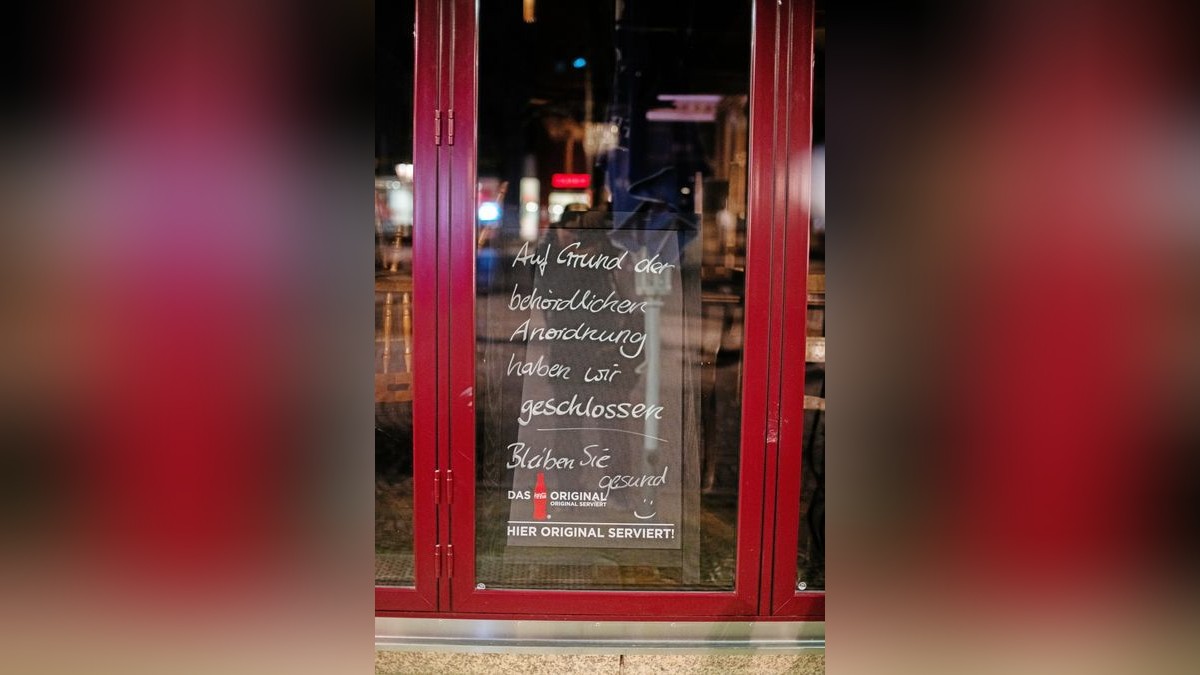 Auf Grund der
behördlichen
Anordnung
haben wir
geschlossen
Bleiben Sie
gesund
DAS Coca-Cola ORIGINAL
ORIGINAL SERVIERT
HIER ORIGINAL SERVIERT!